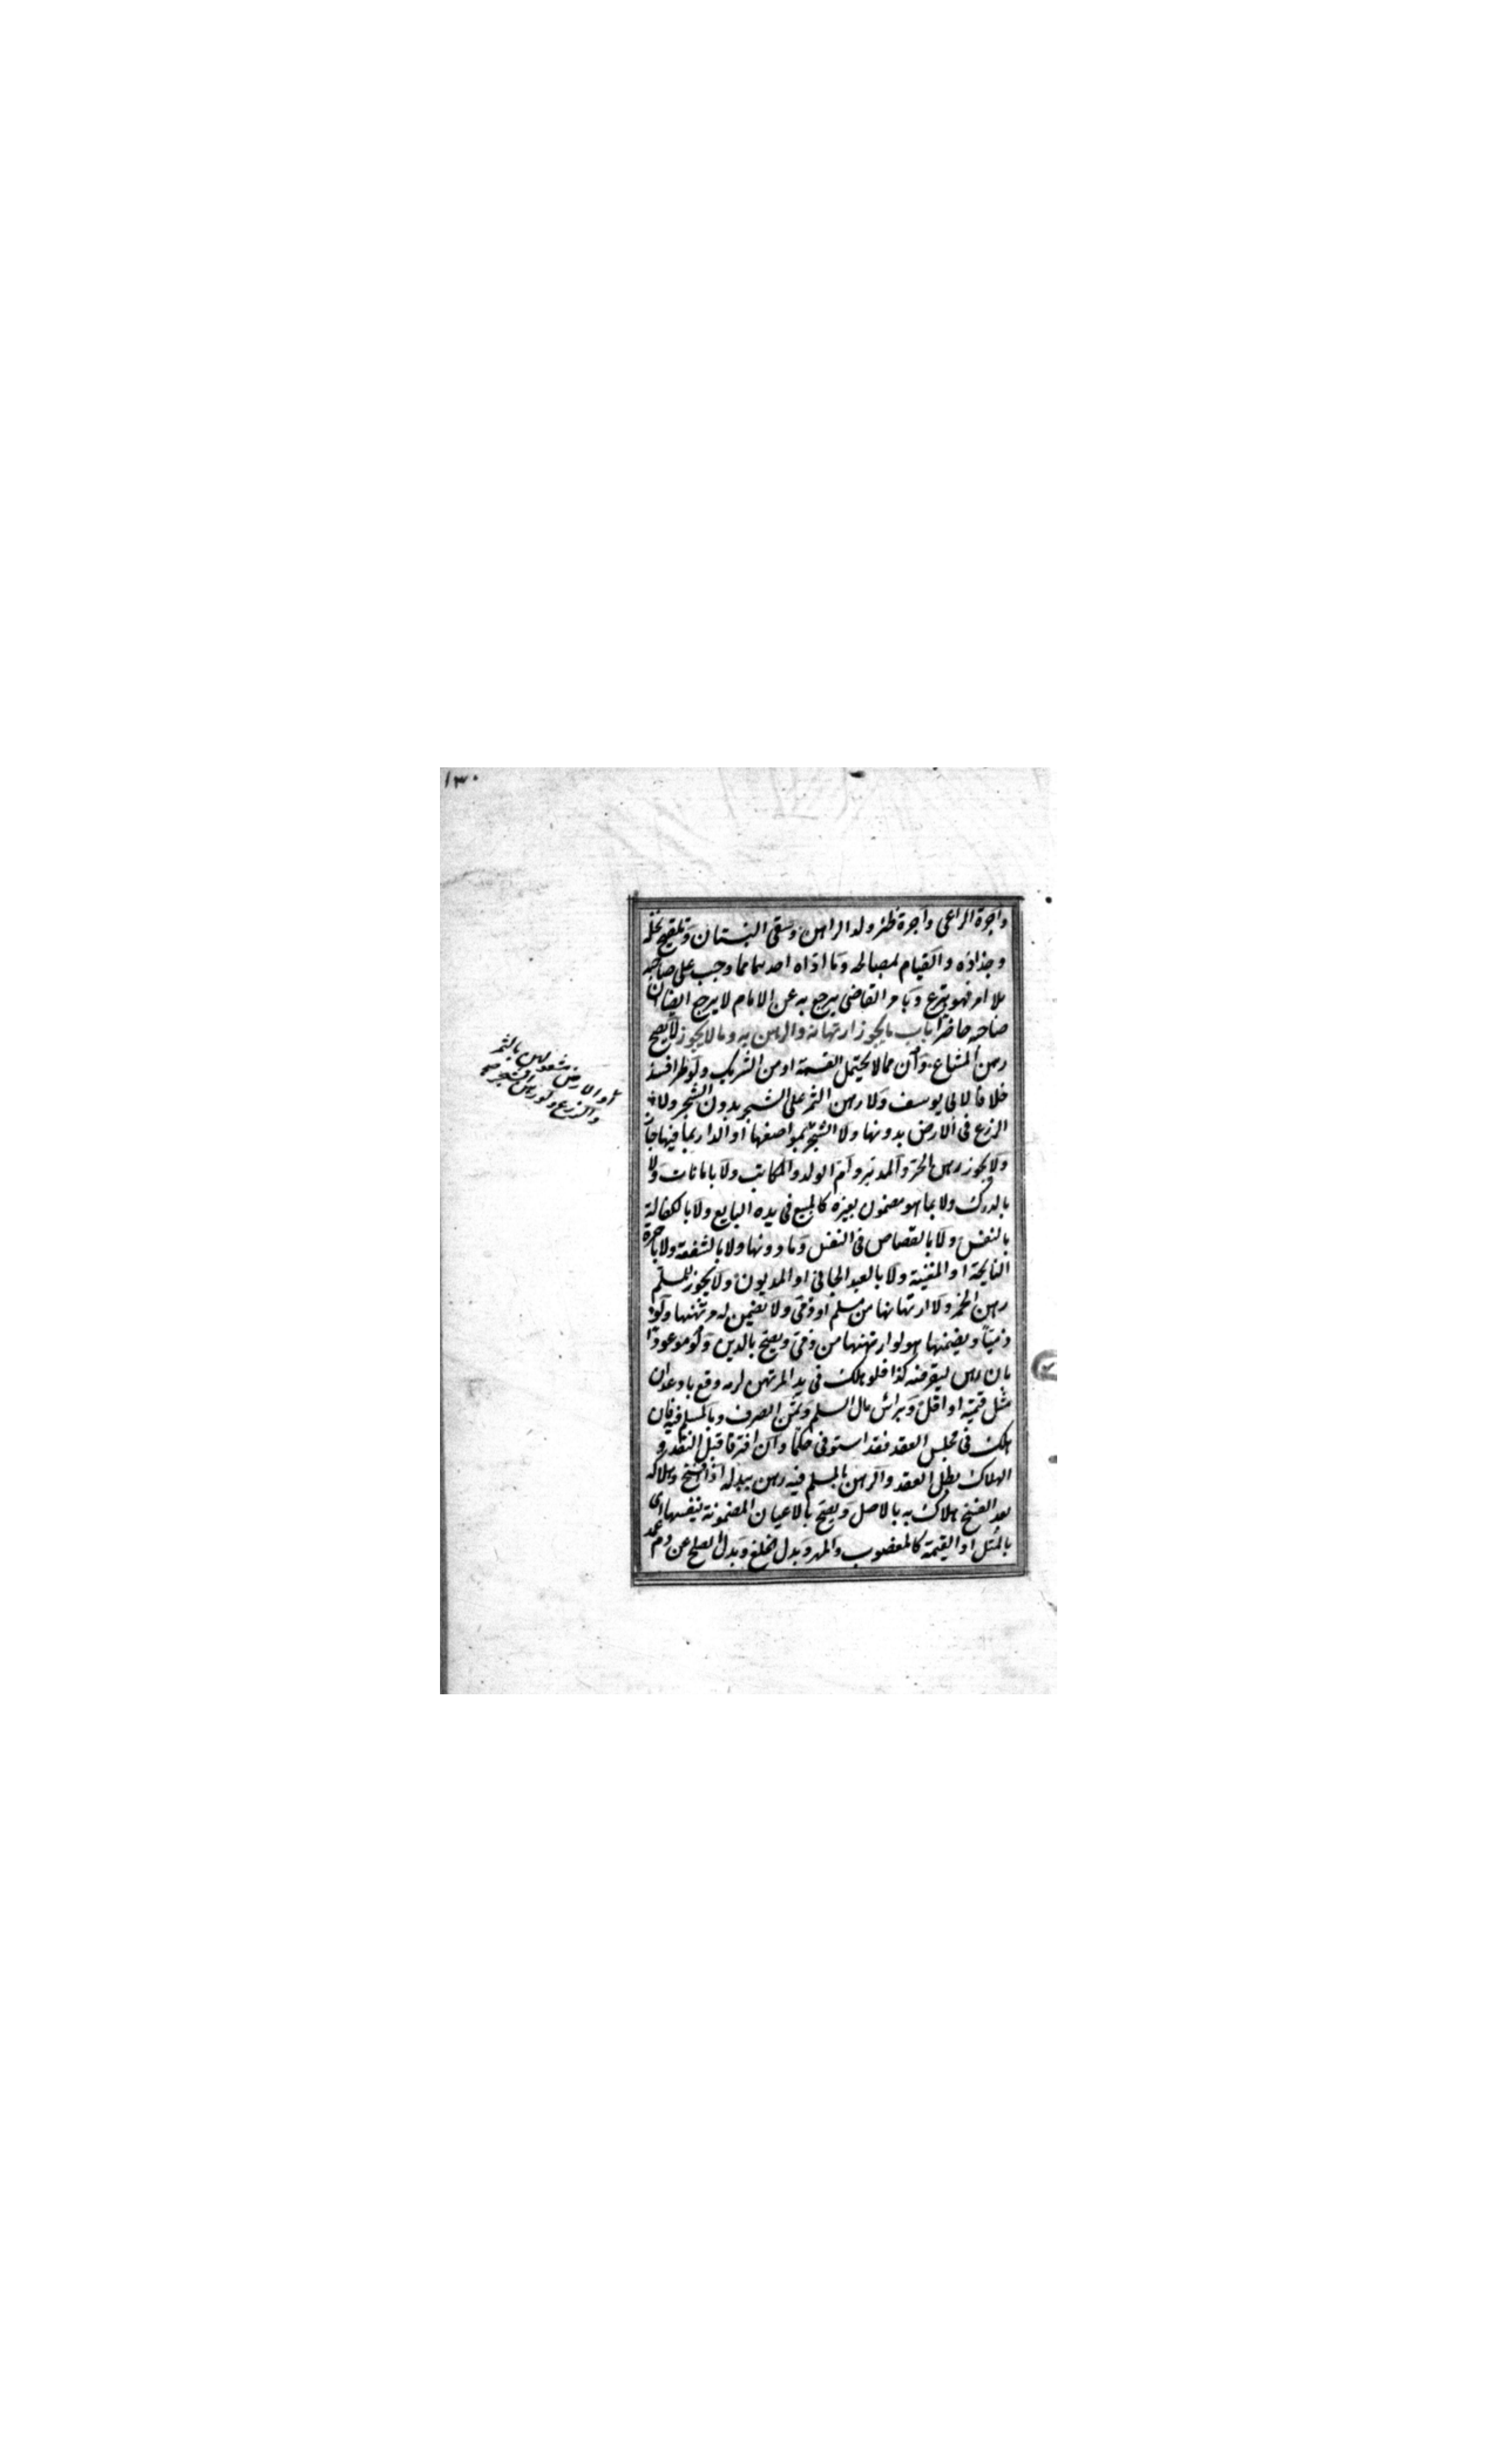 ١٣٠
واجرة الراعى واجرة ظئر ولد الراهن وسقى البستان وتلقيح نخله
وجذاذه والقيام لمصالحه وما اداه احدهما مما وجب على صاحبه
بلا امر فهو تبرع وبامر القاضى يرجع به عن الامام لا يرجع ايضا ان
صاحبه حاضرا باب ما يجوز ارتهانه والرهن به وما لا يجوز لا يصح
رهن المشاع وان مما لا يحتمل القسمة او من الشريك ولو طرا فسد
خلافا لابى يوسف ولا رهن الثمر على الشجر بدون الشجر ولا
الزرع فى الارض بدونها ولا الشجر بمواضعها او الدار بما فيها جاز
ولا يجوز رهن الحر والمدبر وام الولد والمكاتب ولا بامانات ولا
بالدرك ولا بما هو مضمون بغيره كالمبيع فى يده البايع ولا بالكفالة
بالنفس ولا بالقصاص فى النفس وما دونها ولا بالشفعة ولا باجرة
النايحة او المغنية ولا بالعبد الجانى او المديون ولا يجوز للمسلم
رهن الخمر ولا ارتهانها من مسلم او ذمى ولا يضمن له مرتهنها ولو
ذميا ويضمنها هو لو ارتهنها من ذمى ويصح بالدين ولو موعودا
بان رهن ليقرضه كذا فلو هلك فى يد المرتهن لزمه دفع ما وعد ان
مثل قيمته او اقل وبراس مال السلم وثمن الصرف وبالمسلم فيه فان
هلك فى مجلس العقد فقد استوفى حكما وان افترقا قبل النقد و
الهلاك بطل العقد والرهن بالمسلم فيه رهن ببدله اذا فسخ وهلاكه
بعد الفسخ هلاك به بالاصل ويصح بالاعيان المضمونة بنفسها اى
بالمثل او القيمة كالمغصوب والمهر وبدل الخلع وبدل الصلح عن دم عمد
او الارض مشغولين بالثمر
والزرع ولو رهن الشجر صح